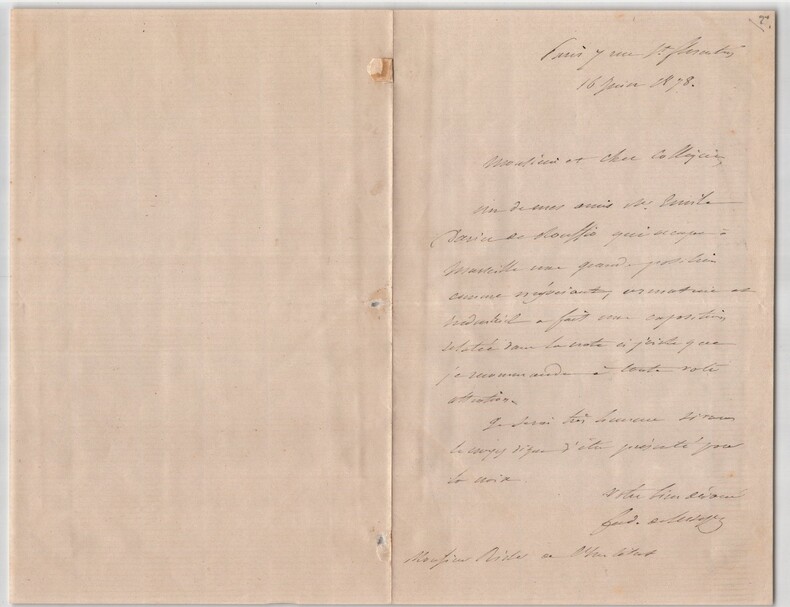 Paris 7 rue St Florentin
16 1878.
Monsieur et cher Collègue
un de mes amis Mr. Emile
de Rouffio qui occupe à
Marseille une grande position
comme négociant, armateur et
industriel a fait une exposition
relatée dans la note ci jointe que
je recommande à toute votre
attention.
Je serai très heureux si vous
le jugez digne d'être présenté pour
la croix
Votre bien dévoué
Ferd. de Lesseps
Monsieur de l'Institut